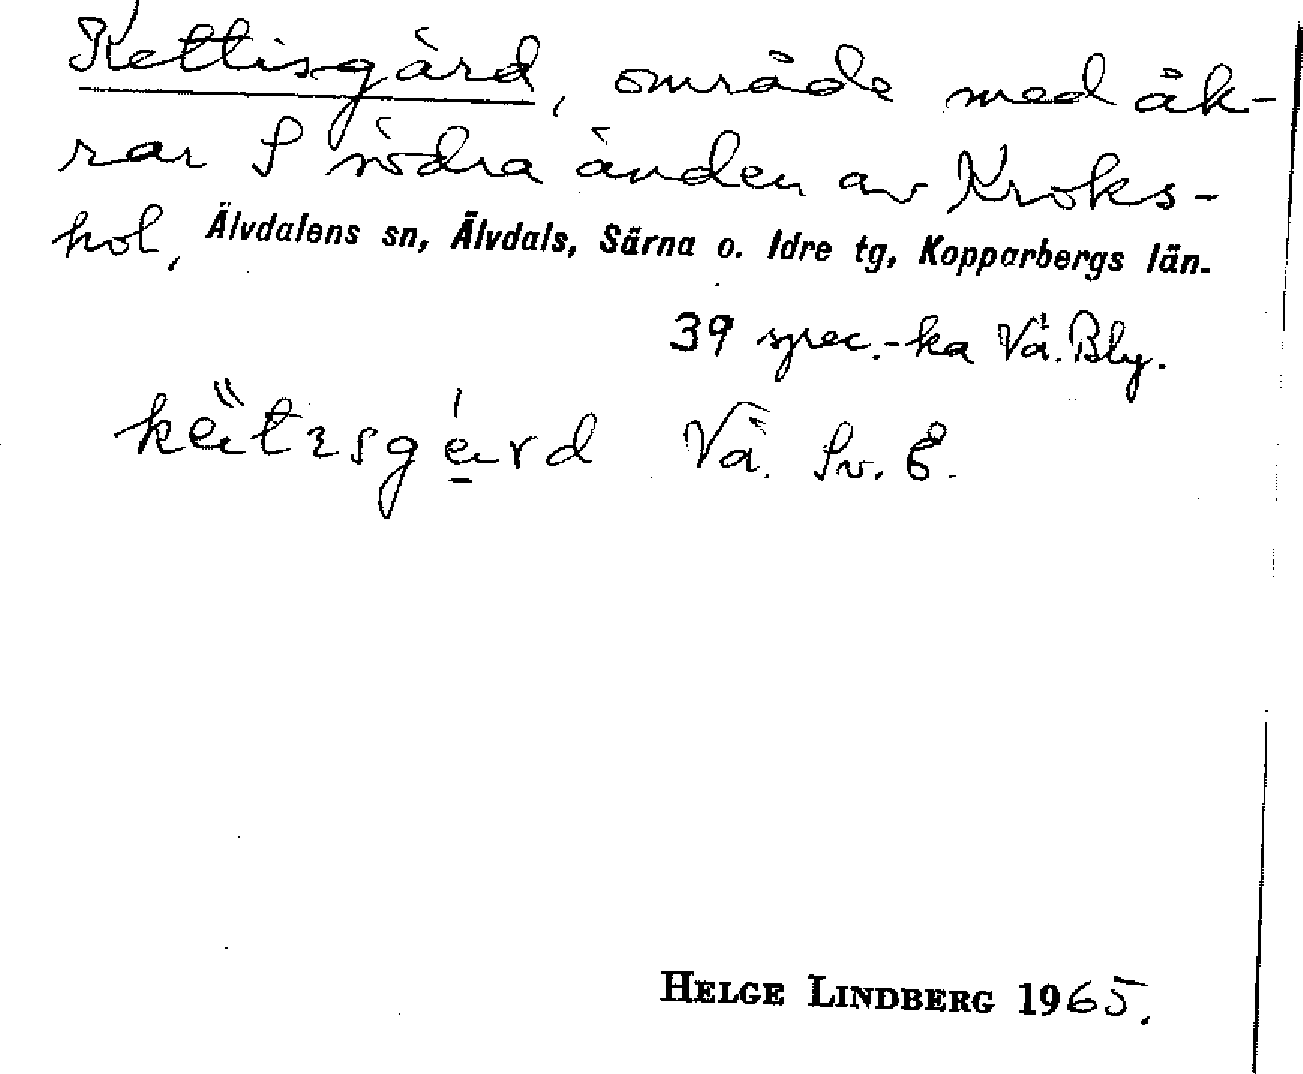 Kettisgård, område med åk-
rar S södra änden av Kroks-
hol, Älvdalens sn, Älvdals, Särna o. Idre tg, Kopparbergs län.
39 spec.-ka Vå. Bly.
Vå. Sv. E.
HELGE LINDBERG 1965.